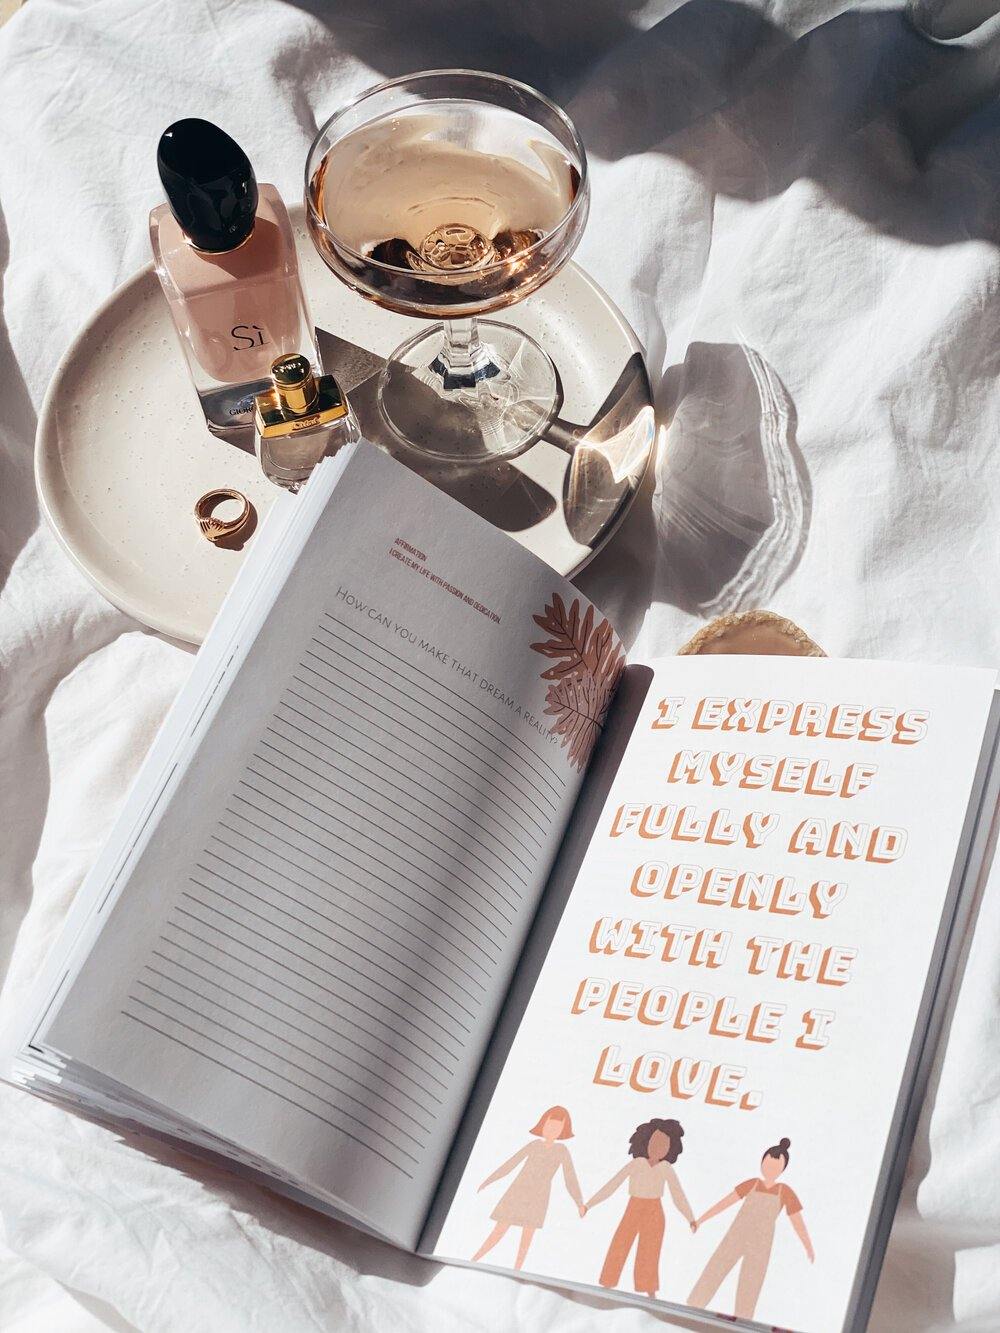 Sì
AFFIRMATION
I CREATE MY LIFE WITH PASSION AND DEDICATION.
HOW CAN YOU MAKE THAT DREAM A REALITY?
I EXPRESS
MYSELF
FULLY AND
OPENLY
WITH THE
PEOPLE I
LOVE.